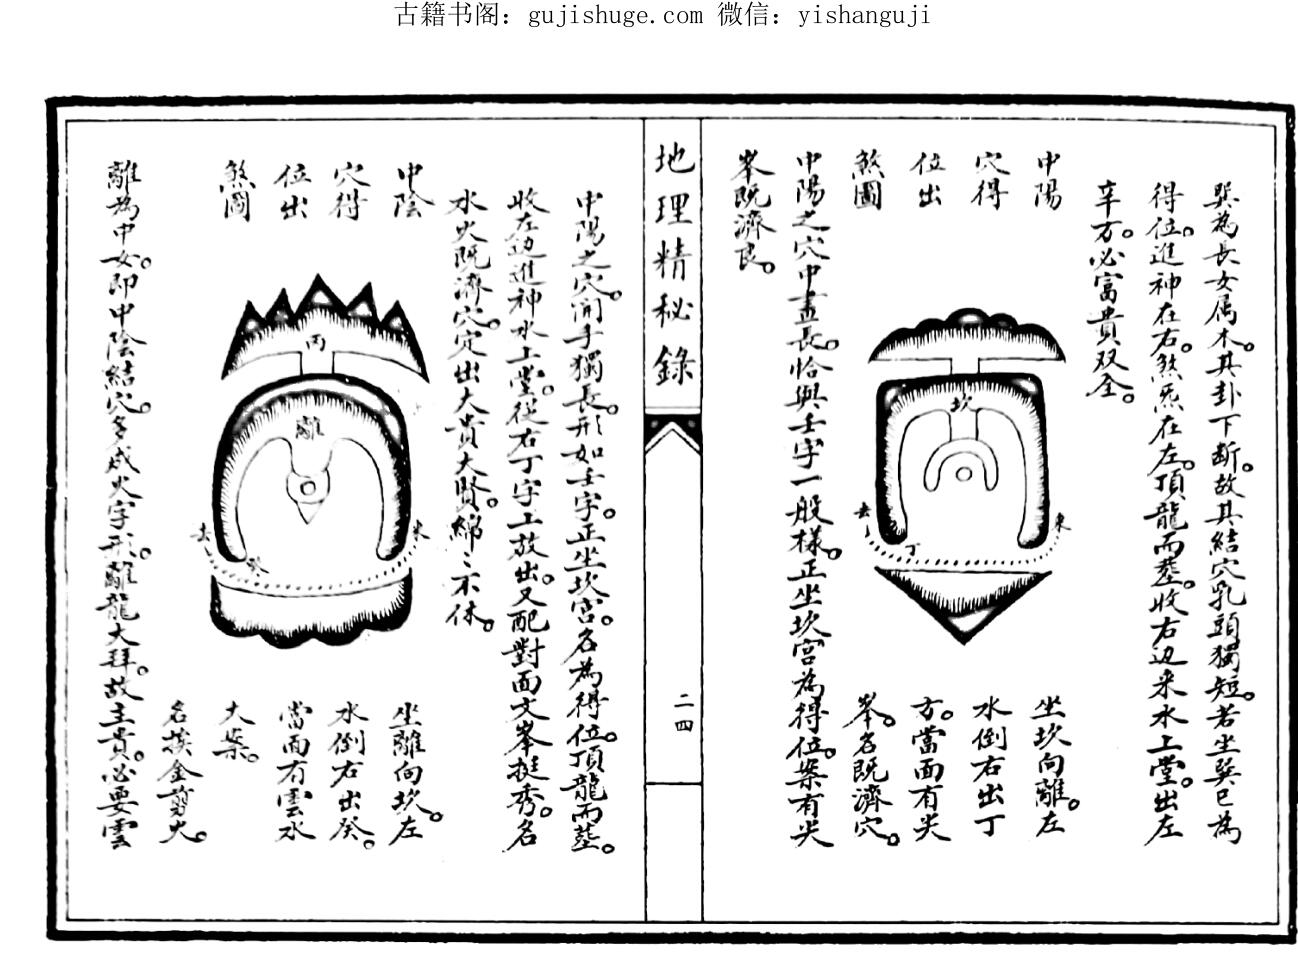 古籍书阁：gujishuge.com 微信：yishanguji
巽為長女属木。其卦下断。故其結穴乳頭獨短。若坐巽巳為
得位。進神在右。煞炁在左。頂龍而塟。收右边来水上堂。出左
辛方。必富貴双全。
中陽
穴得
位出
煞圖
坎
去
丁
来
坐坎向離。左
水倒右出丁
方。當面有尖
峯。名既濟穴。
中陽之穴中畫長。恰與壬字一般樣。正坐坎宮為得位。案有尖
峯既濟良。
地理精秘錄
二四
中陽之穴。開手獨長。形如壬字。正坐坎宮。名為得位。頂龍而塟。
收左边進神水上堂。從右丁字上放出。又配對面文峯挺秀。名
水火既濟穴。定出大貴大賢。綿々不休。
中陰
穴得
位出
煞圖
丙
離
去
癸
来
坐離向坎。左
水倒右出癸。
當面有雲水
大案。
名挨金剪火。
離為中女。即中陰結穴。多成火字形。離龍大拜。故主貴。必要雲